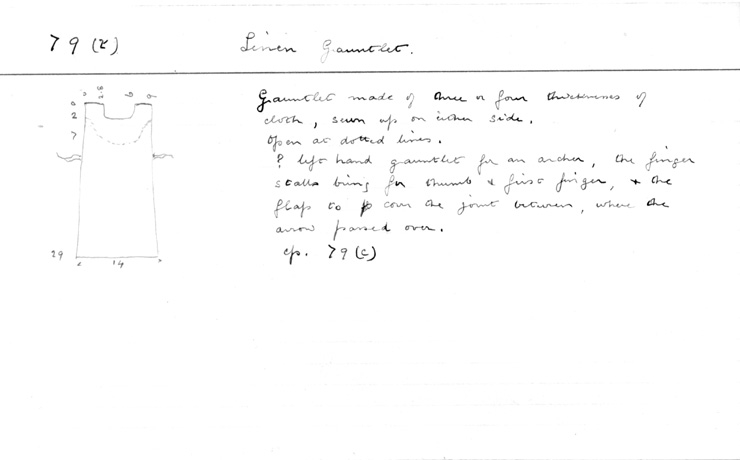 79 (r)
Linen Gauntlet.
Gauntlet made of three or four thicknesses of
cloth, sewn up on either side.
Open at dotted lines.
? left hand gauntlet for an archer, the finger
stalls being for thumb & first finger, & the
flaps to cover the joint between, where the
arrow passed over.
cp. 79 (c)
0
2
7
29
14